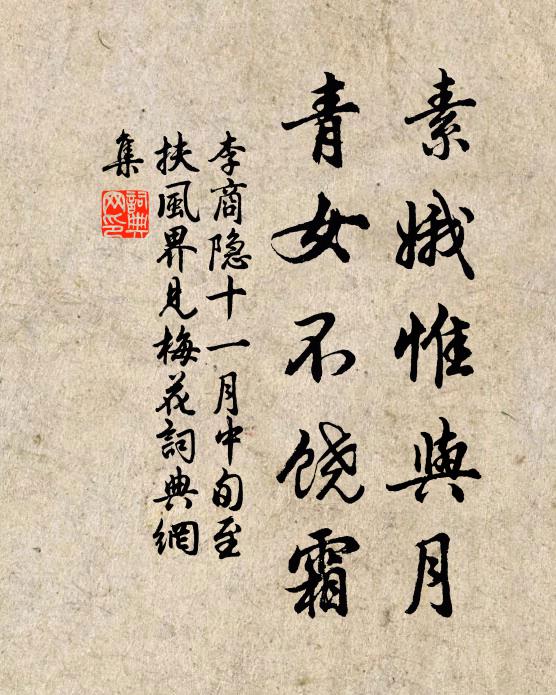 素娥惟與月
青女不饶霜
李商隐十一月中旬至
扶風界見梅花詞典網
集
詞典
网印